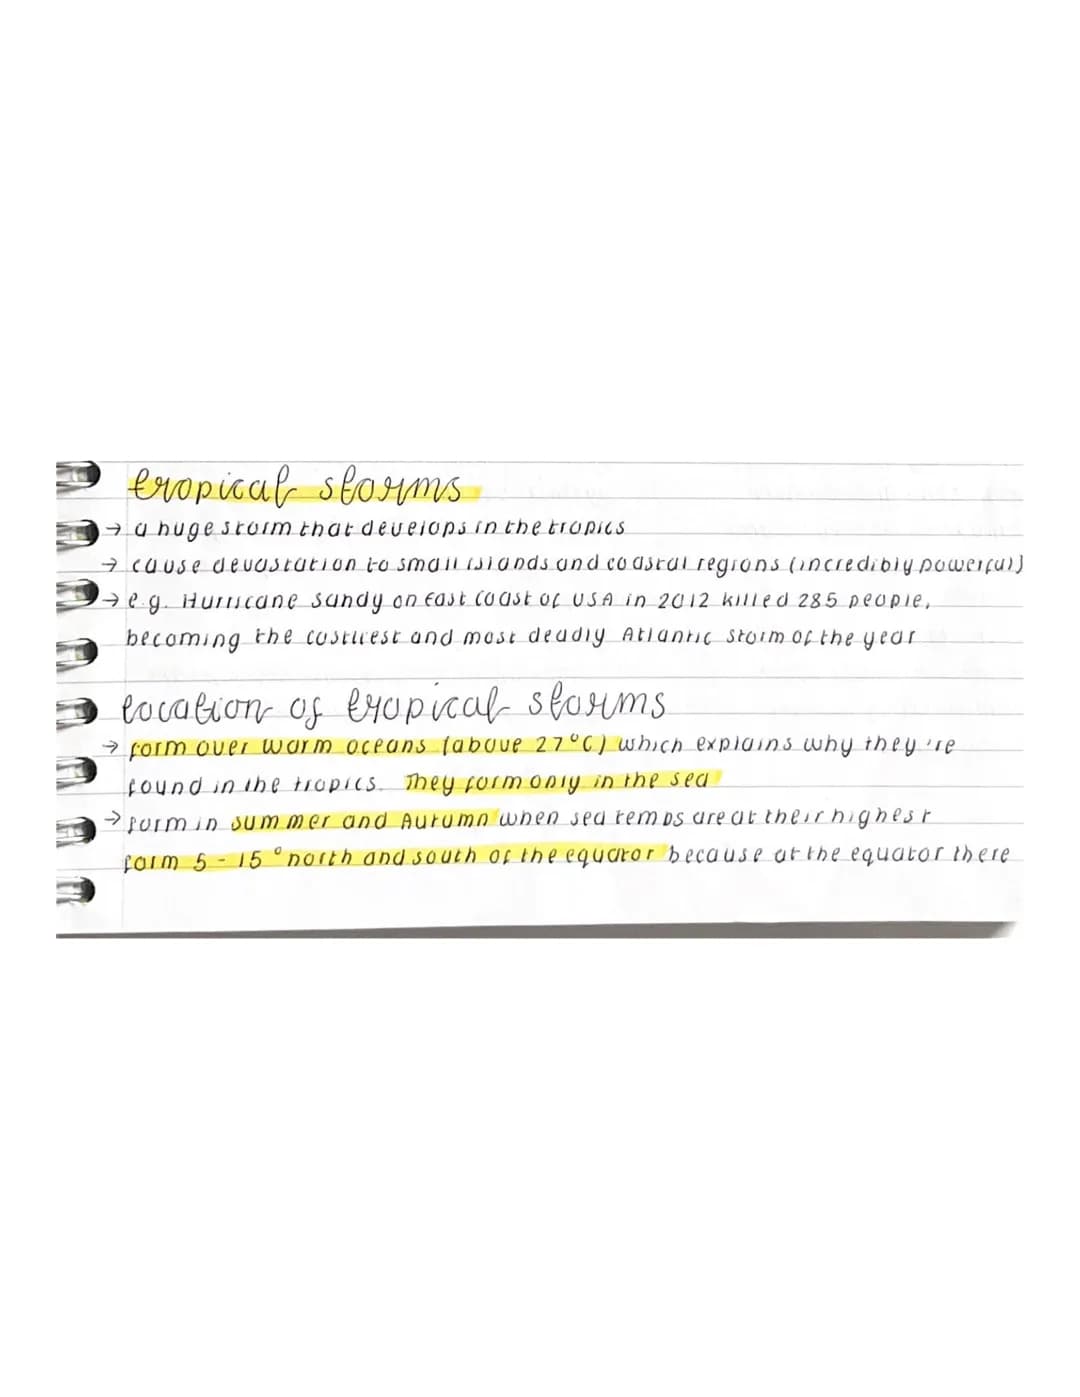 tropical storms
→ a huge storm that develops in the tropics
→ cause devastation to small islands and coastal regions (incredibly powerful)
→ e.g. Hurricane Sandy on East coast of USA in 2012 killed 285 people,
becoming the costliest and most deadly Atlantic storm of the year
location of tropical storms
→ form over warm oceans (above 27°C) which explains why they're
found in the tropics. They form only in the sea
→ form in summer and Autumn when sea temps are at their highest
form 5 - 15° north and south of the equator because at the equator there